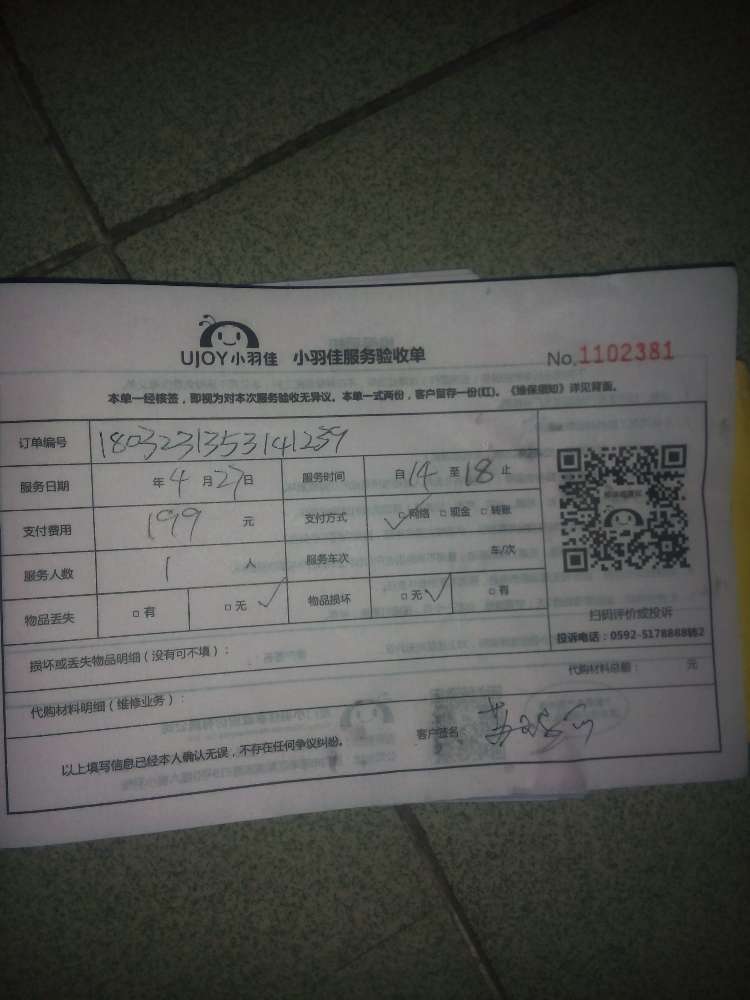 UJOY小羽佳 小羽佳服务验收单 No.1102381
本单一经核签，即视为对本次服务验收无异议。本单一式两份，客户留存一份(红)。《维保须知》详见背面。
订单编号 1803231353141239
服务日期 年4月27日 服务时间 自14至18止
支付费用 199 元 支付方式 ✓□网络 □现金 □转账
服务人数 1 人 服务车次 车/次
物品丢失 □有 □无✓ 物品损坏 □无✓ □有
扫码评价或投诉
投诉电话：0592-5178888转2
损坏或丢失物品明细（没有可不填）：
代购材料明细（维修业务）： 代购材料总额： 元
以上填写信息已经本人确认无误，不存在任何争议纠纷。 客户签名